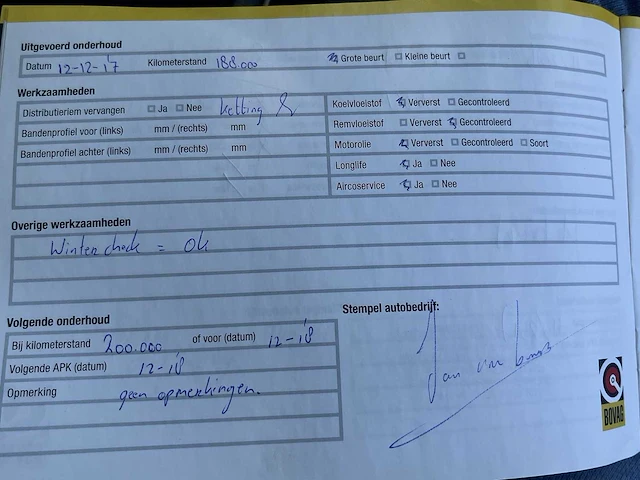 Uitgevoerd onderhoud
Datum 12-12-17 Kilometerstand 188.000 Grote beurt Kleine beurt
Werkzaamheden
Distributieriem vervangen Ja Nee ketting
Bandenprofiel voor (links) mm / (rechts) mm
Bandenprofiel achter (links) mm / (rechts) mm
Koelvloeistof Ververst Gecontroleerd
Remvloeistof Ververst Gecontroleerd
Motorolie Ververst Gecontroleerd Soort
Longlife Ja Nee
Aircoservice Ja Nee
Overige werkzaamheden
Wintercheck = ok
Volgende onderhoud
Bij kilometerstand 200.000 of voor (datum) 12-18
Volgende APK (datum) 12-18
Opmerking geen opmerkingen.
Stempel autobedrijf:
Jan
BOVAG